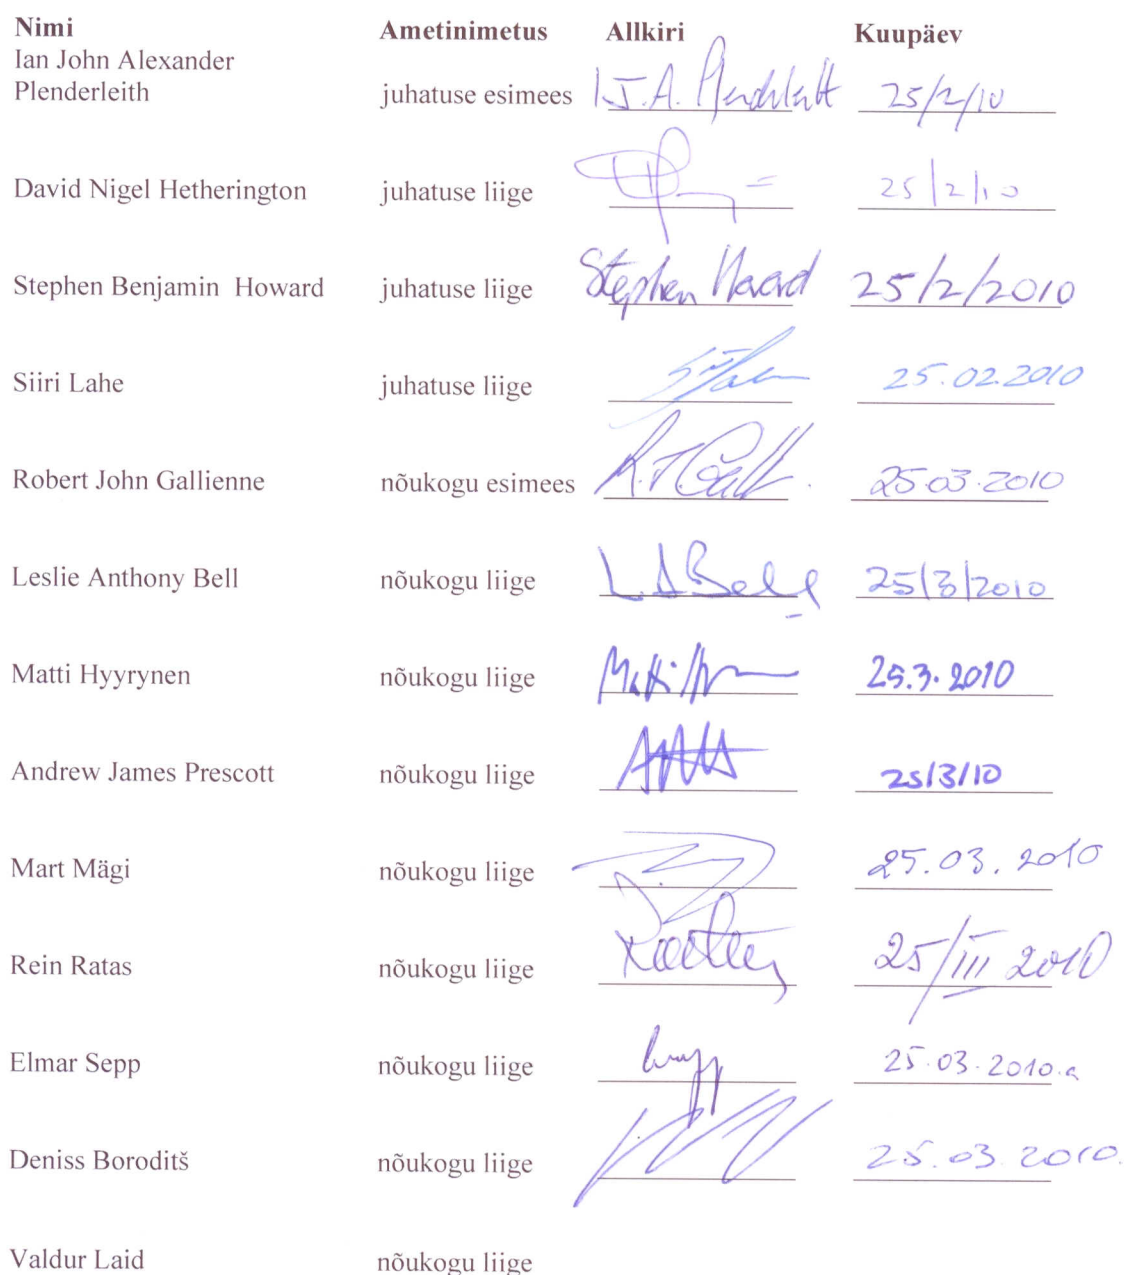 Nimi Ametinimetus Allkiri Kuupäev
Ian John Alexander
Plenderleith juhatuse esimees I.J.A. Plenderleith 25/2/10
David Nigel Hetherington juhatuse liige 25/2/10
Stephen Benjamin Howard juhatuse liige Stephen Howard 25/2/2010
Siiri Lahe juhatuse liige 25.02.2010
Robert John Gallienne nõukogu esimees 25.03.2010
Leslie Anthony Bell nõukogu liige L A Bell 25/3/2010
Matti Hyyrynen nõukogu liige Matti 25.3.2010
Andrew James Prescott nõukogu liige 25/3/10
Mart Mägi nõukogu liige 25.03.2010
Rein Ratas nõukogu liige 25/III 2010
Elmar Sepp nõukogu liige 25.03.2010.a
Deniss Boroditš nõukogu liige 25.03.2010.
Valdur Laid nõukogu liige